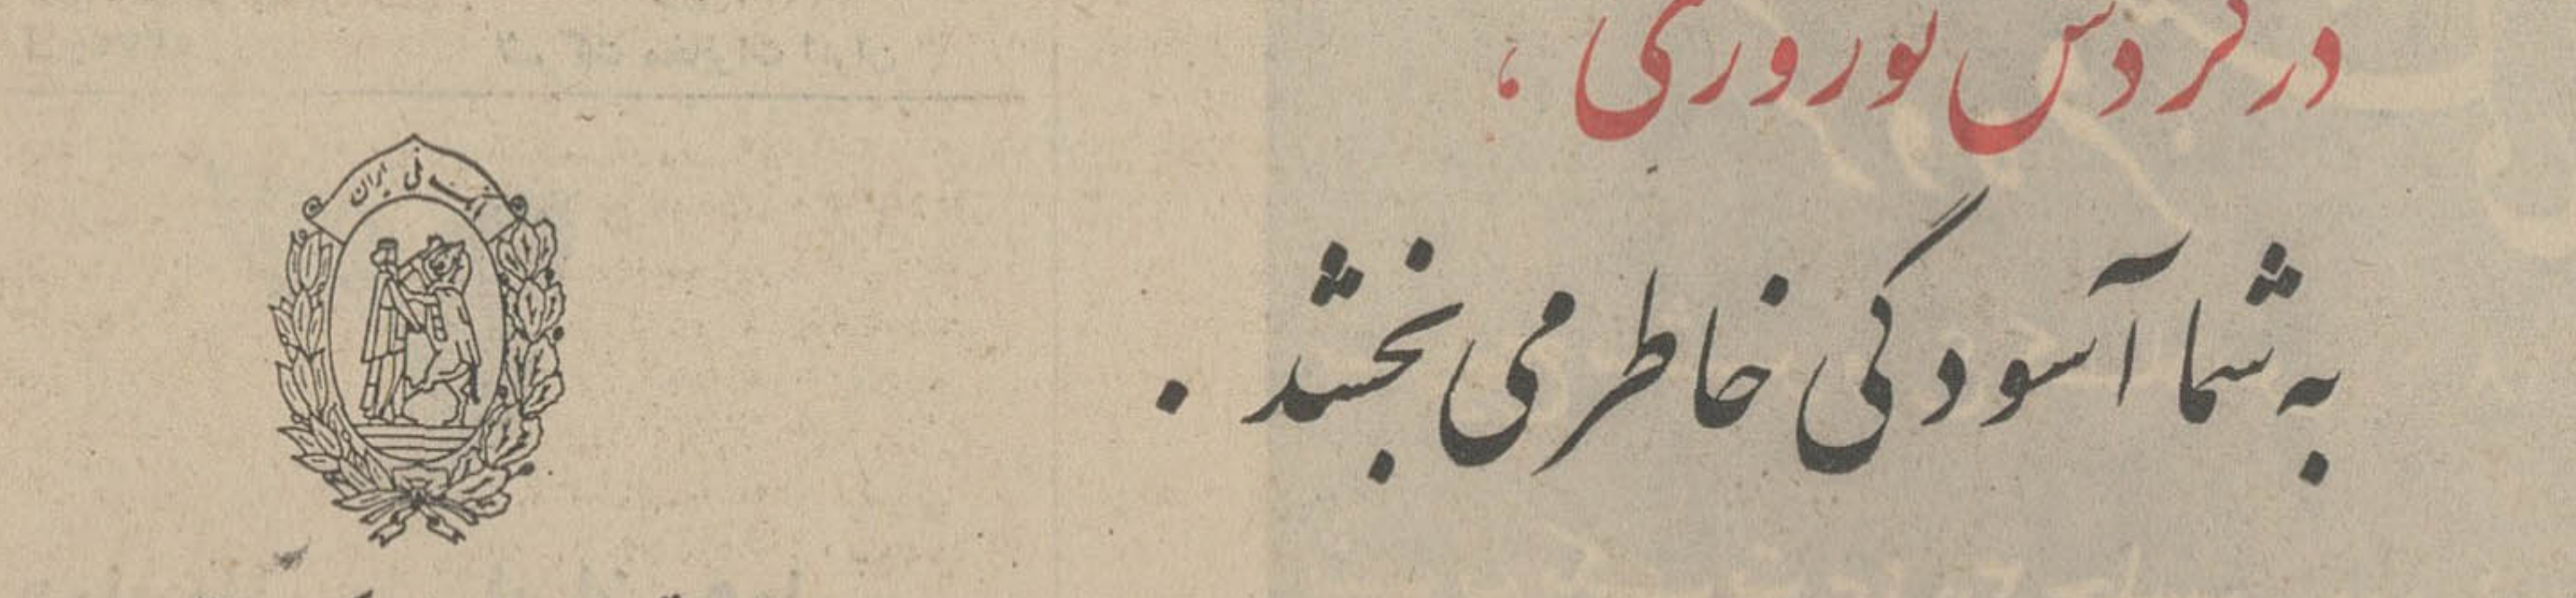 در گردش نوروزی ،
به شما آسودگی خاطر می بخشد .
بانک ملی ایران